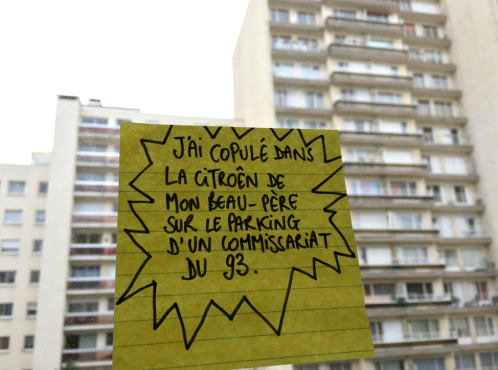 J'AI COPULÉ DANS
LA CITROËN DE
MON BEAU-PÈRE
SUR LE PARKING
D'UN COMMISSARIAT
DU 93.